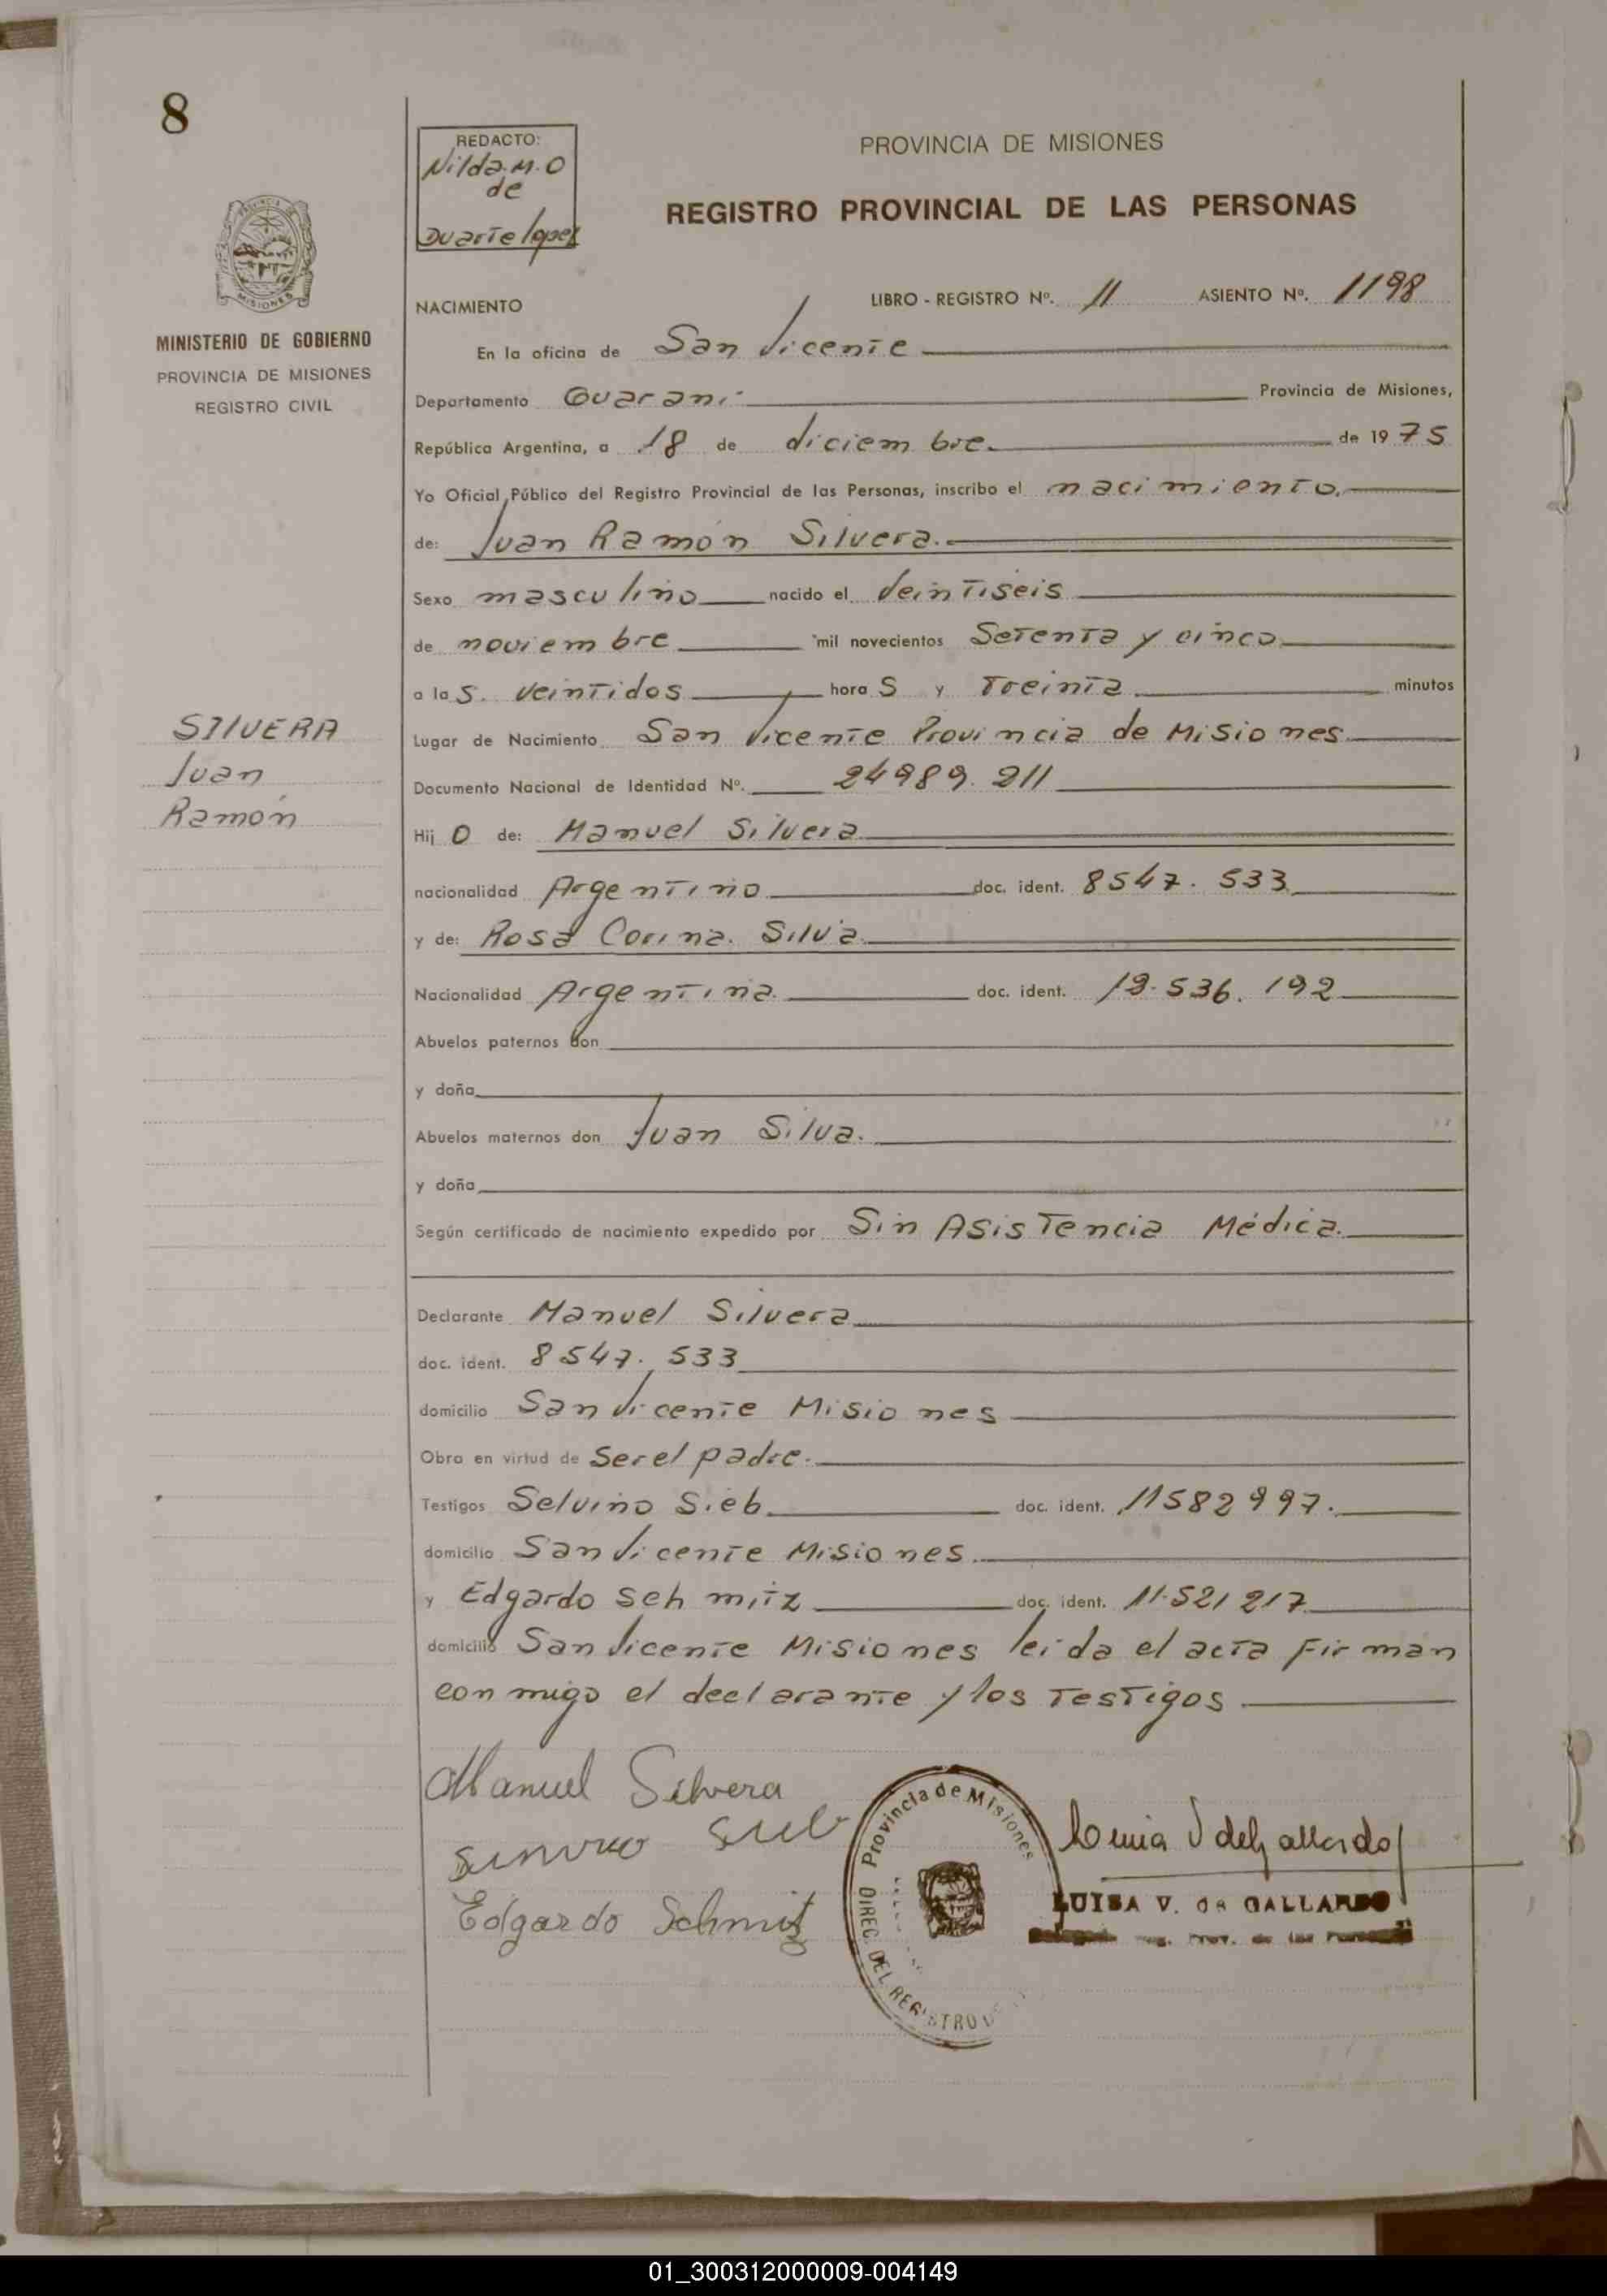 8
REDACTO:
Nilda.M.O
de
Duarte lopez
PROVINCIA DE MISIONES
REGISTRO PROVINCIAL DE LAS PERSONAS
PROVINCIA DE
MISIONES
MINISTERIO DE GOBIERNO
PROVINCIA DE MISIONES
REGISTRO CIVIL
NACIMIENTO LIBRO - REGISTRO Nº. 11 ASIENTO Nº. 1198
En la oficina de San Vicente
Departamento Guarani Provincia de Misiones,
República Argentina, a 18 de diciembre. de 1975
Yo Oficial Público del Registro Provincial de las Personas, inscribo el nacimiento.
de: Juan Ramón Silvera.
Sexo masculino nacido el Veintiseis
de noviembre mil novecientos Setenta y cinco
a las. veintidos horas y Treinta minutos
SILVERA
Juan
Ramón
Lugar de Nacimiento San Vicente Provincia de Misiones
Documento Nacional de Identidad Nº. 24989.211
Hijo de: Manuel Silvera
nacionalidad Argentino doc. ident. 8547.533
y de: Rosa Corina. Silva
Nacionalidad Argentina. doc. ident. 536.192
Abuelos paternos don
y doña
Abuelos maternos don Juan Silva.
y doña
Según certificado de nacimiento expedido por Sin Asistencia Médica.
Declarante Manuel Silvera
doc. ident. 8547.533
domicilio San Vicente Misiones
Obra en virtud de Ser el padre.
Testigos Selvino Sieb doc. ident. 11582997.
domicilio San Vicente Misiones
y Edgardo Schmitz doc. ident. 11.521217
domicilio San Vicente Misiones leida el acta Firman
conmigo el declarante y los Testigos
Manuel Silvera
Sieb
Edgardo Schmitz
Provincia de Misiones
DIREC. DEL REGISTRO
LUISA V. DE GALLARDO
Reg. Prov. de las
01_300312000009-004149